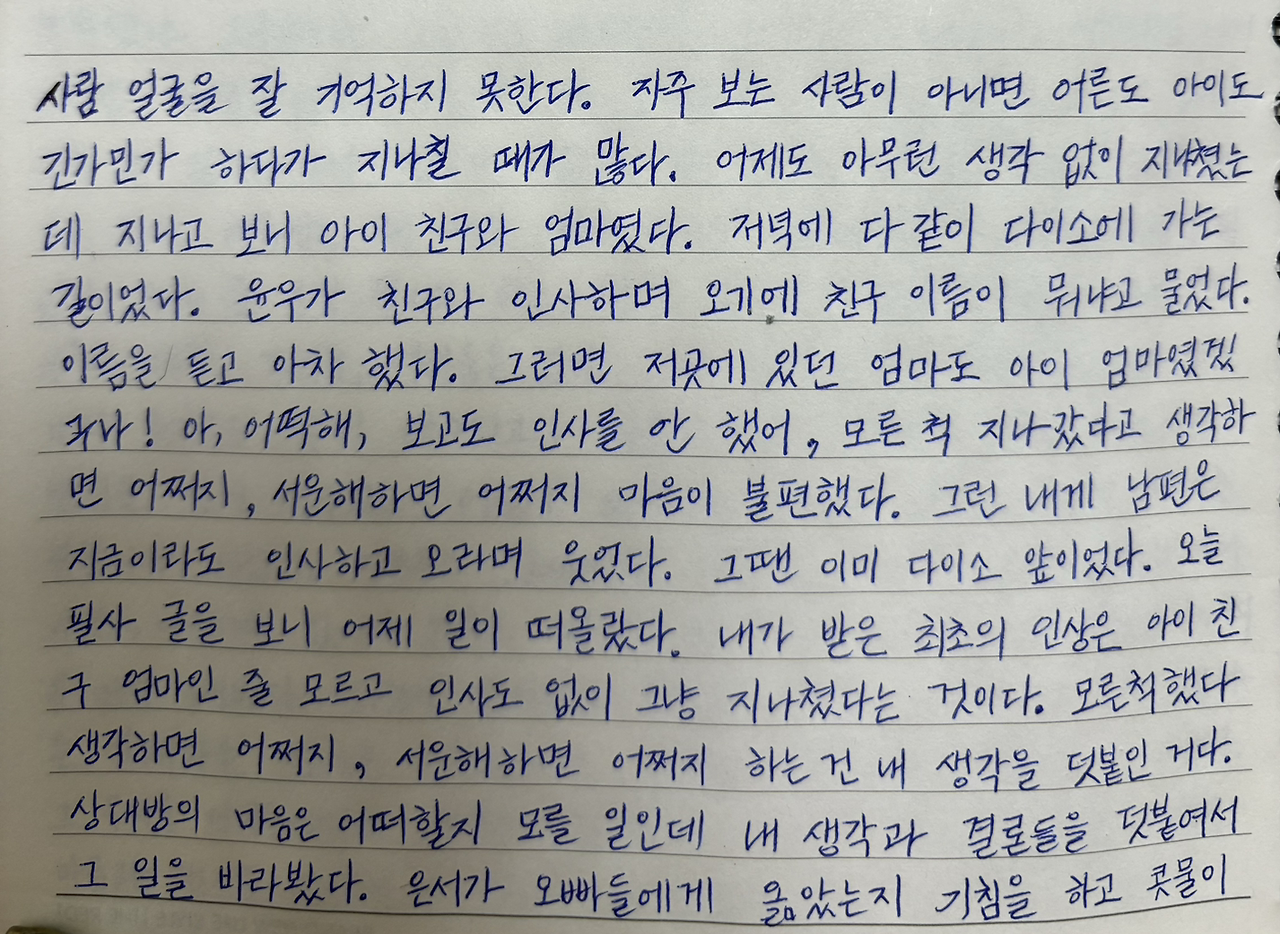 사람 얼굴을 잘 기억하지 못한다. 자주 보는 사람이 아니면 어른도 아이도
긴가민가 하다가 지나칠 때가 많다. 어제도 아무런 생각 없이 지나쳤는
데 지나고 보니 아이 친구와 엄마였다. 저녁에 다같이 다이소에 가는
길이었다. 윤우가 친구와 인사하며 오기에 친구 이름이 뭐냐고 물었다.
이름을 듣고 아차 했다. 그러면 저곳에 있던 엄마도 아이 엄마였겠
구나! 아, 어떡해, 보고도 인사를 안 했어, 모른 척 지나갔다고 생각하
면 어쩌지, 서운해하면 어쩌지 마음이 불편했다. 그런 내게 남편은
지금이라도 인사하고 오라며 웃었다. 그땐 이미 다이소 앞이었다. 오늘
필사 글을 보니 어제 일이 떠올랐다. 내가 받은 최초의 인상은 아이 친
구 엄마인 줄 모르고 인사도 없이 그냥 지나쳤다는 것이다. 모른척했다
생각하면 어쩌지, 서운해하면 어쩌지 하는 건 내 생각을 덧붙인 거다.
상대방의 마음은 어떠할지 모를 일인데 내 생각과 결론들을 덧붙여서
그 일을 바라봤다. 은서가 오빠들에게 옮았는지 기침을 하고 콧물이